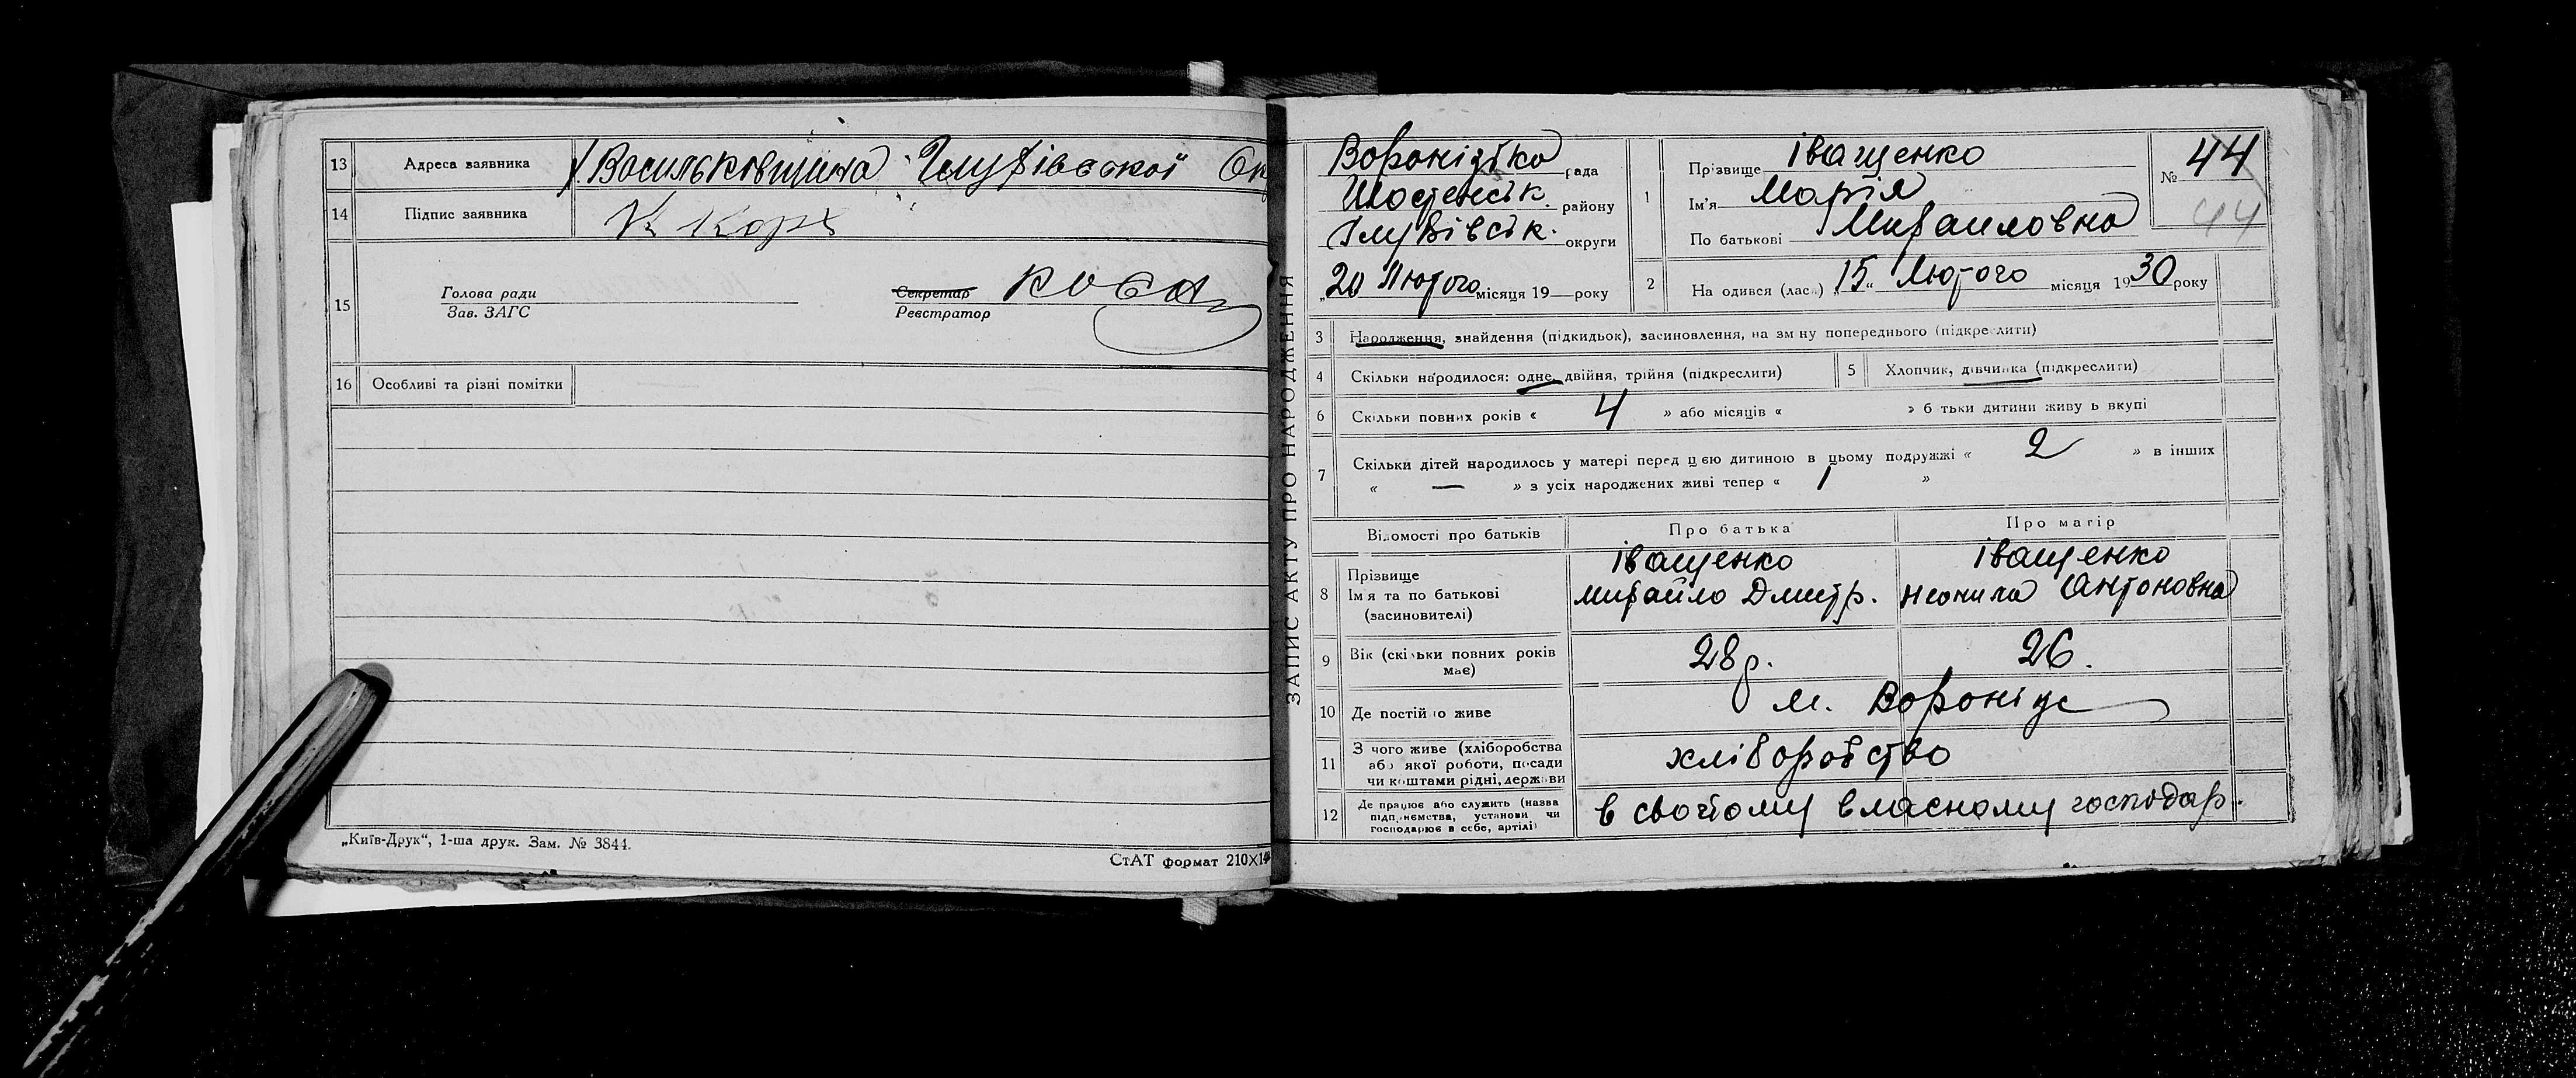 13 Адреса заявника х. Васильковщина Глухівської Ок
14 Підпис заявника К Корж
15 Голова ради Секретар
Зав. ЗАГС Реєстратор
16 Особливі та різні помітки
„Київ-Друк“, 1-ша друк. Зам. № 3844.
СтАТ формат 210×14
ЗАПИС АКТУ ПРО НАРОДЖЕННЯ
Вороніжко рада
Шостенськ. району
Глухівськ. округи
„20 Лютого місяця 19 — року
1 Прізвище Іващенко
Ім'я Марія
По батькові Михайловна
№ 44
44
2 На одився (лась) „15“ Лютого місяця 1930 року
3 Народження, знайдення (підкидьок), засиновлення, на зм ну попереднього (підкреслити)
4 Скільки народилося: одне, двійня, трійня (підкреслити) 5 Хлопчик, дівчинка (підкреслити)
6 Скільки повних років « 4 » або місяців « » б тьки дитини живу ь вкупі
7 Скільки дітей народилось у матері перед цією дитиною в цьому подружжі « 2 » в інших
« — » з усіх народжених живі тепер « 1 »
Відомості про батьків Про батька Про матір
8 Прізвище Іващенко Іващенко
Ім'я та по батькові Михайло Дмитр. Неонила Антоновна
(засиновителі)
9 Вік (скільки повних років має) 28 р. 26.
10 Де постійно живе м. Вороніж
11 З чого живе (хліборобства
або якої роботи, посади
чи коштами рідні, держави хліборобство
12 Де працює або служить (назва
підприємства, установи чи
господарює в себе, артілі) в своєому власному господар.